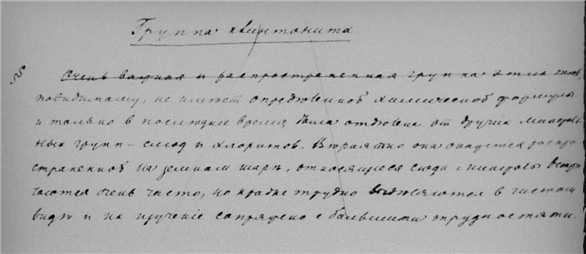 Группа клинтонита
Очень важная и распространенная группа эта
повидимому, не имеет определенной химической формулы
и только в последнее время была отделена от других минераль
ных групп - слюд и хлоритов. Вероятно она окажется распро
страненной на земном шаре, относящиеся сюда минералы встре
чаются очень часто, но крайне трудно выделяются в чистом
виде и их изучение сопряжено с большими трудностями.